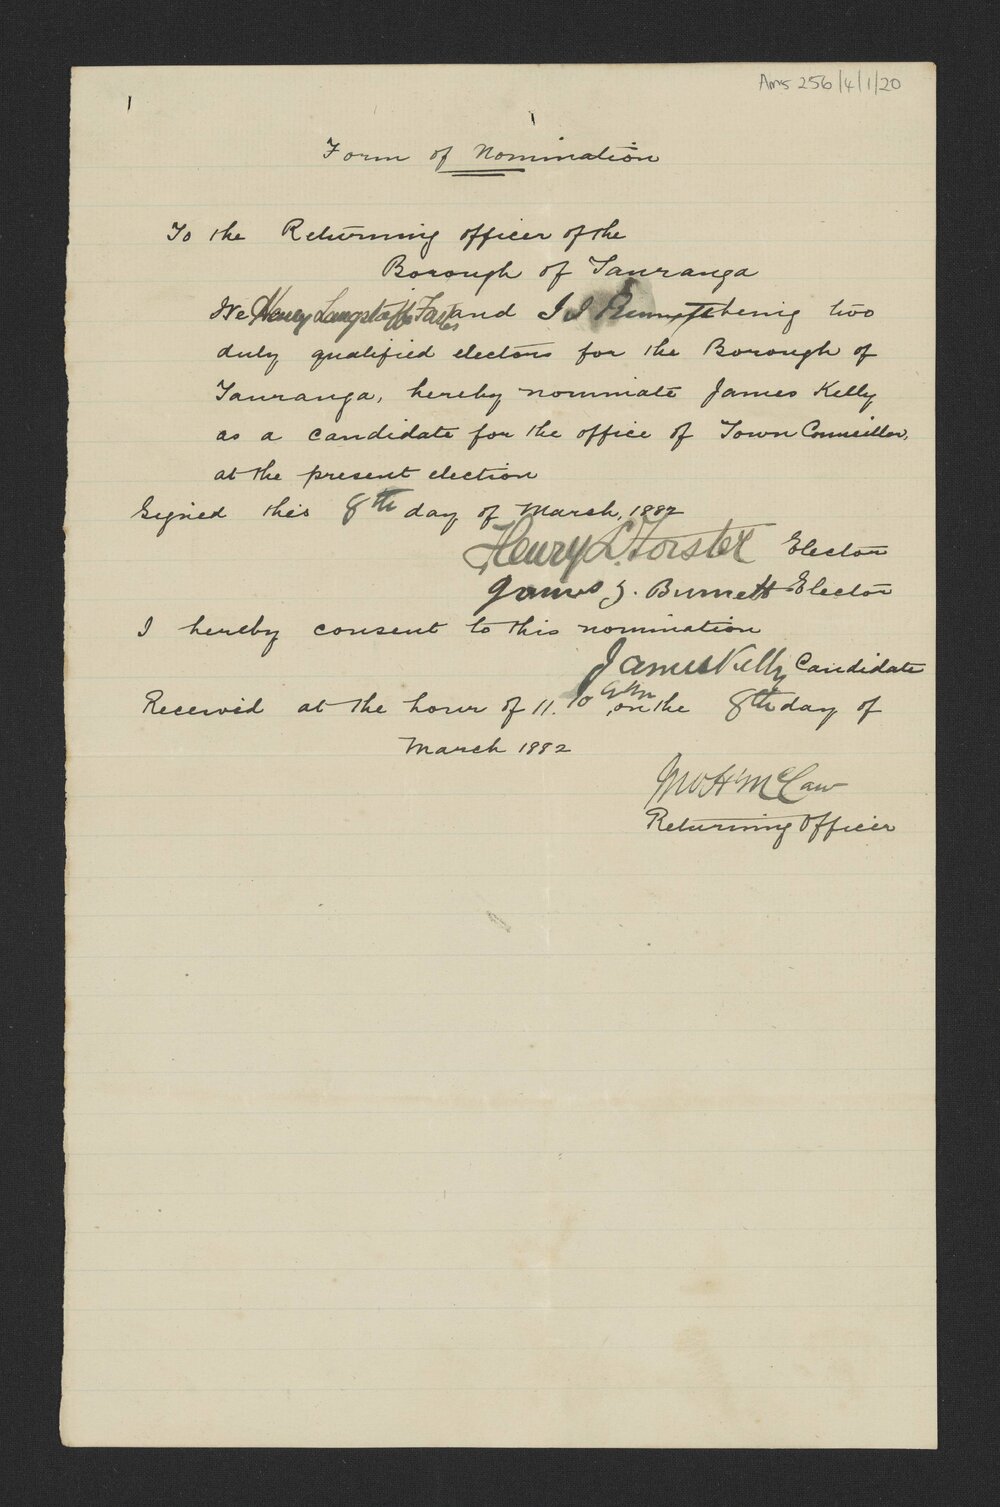 Ams 256/4/1/20
Form of Nomination
To the Returning officer of the
Borough of Tauranga
We Henry Langstaff and J J Burnett being two
duly qualified electors for the Borough of
Tauranga, hereby nominate James Kelly
as a candidate for the office of Town Councillor,
at the present election
Signed this 8th day of March, 1882
Henry L. Forster Elector
James J. Burnett Elector
I hereby consent to this nomination
James Kelly Candidate
Received at the hour of 11.10 am, on the 8th day of
March 1882
McCaw
Returning Officer